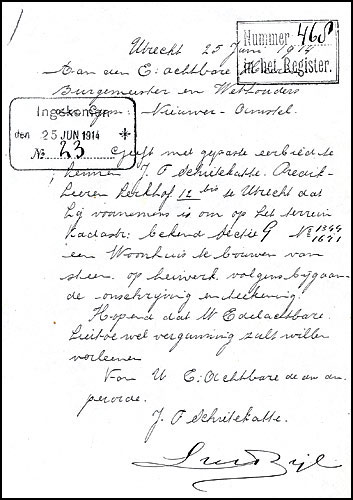 Utrecht 25 Juni 1914
Nummer 468
in het Register.
Aan den E: achtbare
Burgemeister en Wethouders
Nieuwer-Amstel.
Ingekomen
den 25 JUN 1914
No. 23
Geeft met gepaste eerbied te
kennen J. P Schritekatte. Predik-
heeren Kerkhof 12 bis te Utrecht dat
hij voornemens is om op het terrein
Kadastr: bekend Sectie G No 1344
1621
een Woonhuis te bouwen van
steen op heiwerk volgens bijgaan-
de omschrijving en teekening.
Hopend dat U Edelachtbare
hiertoe wel vergunning zult willen
verleenen
Van U E: Achtbare de
J. P Schritekatte.